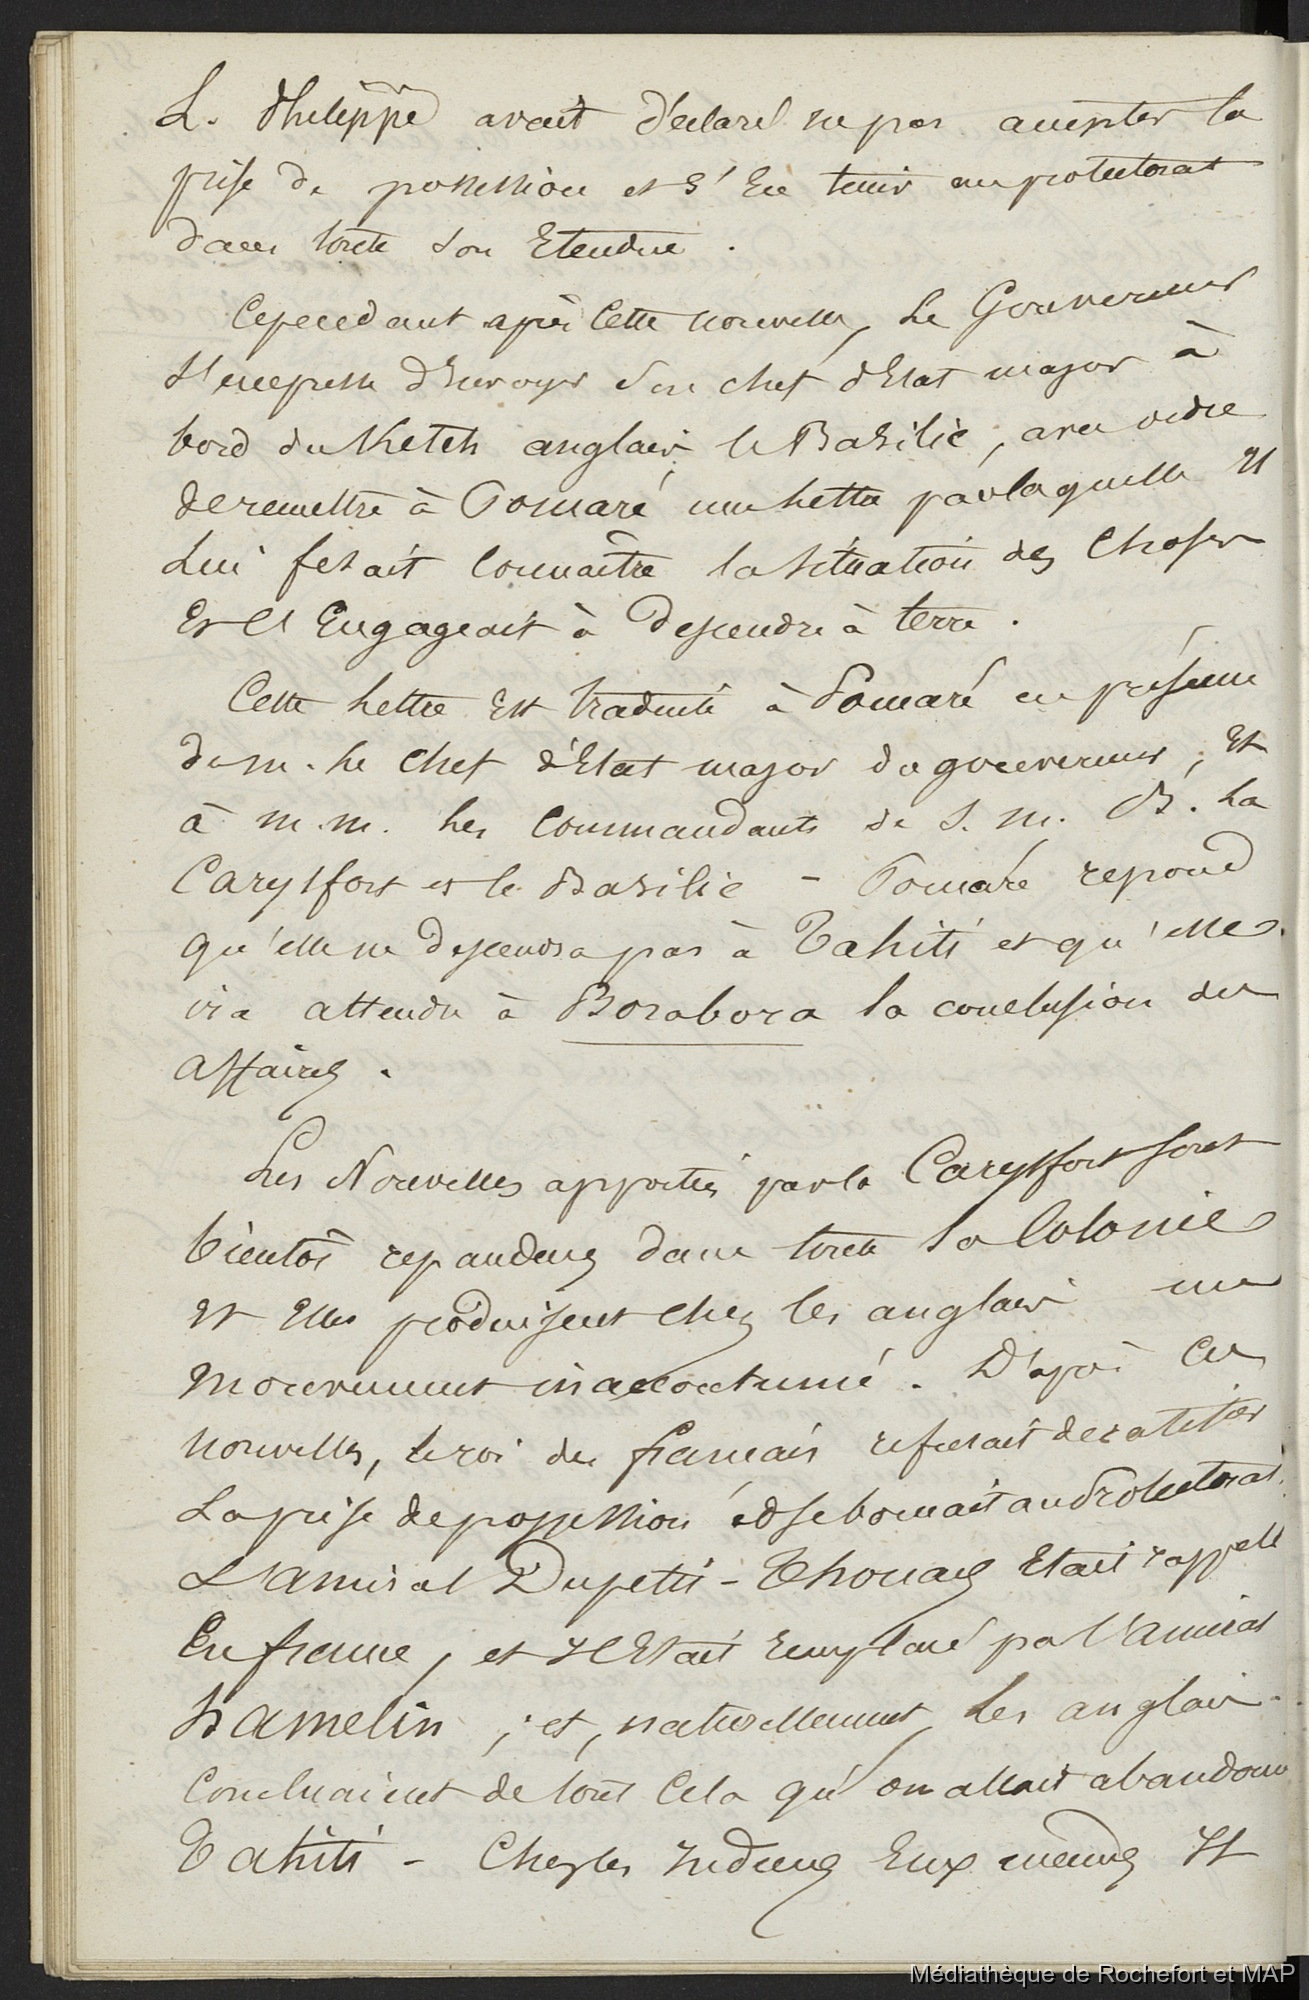 L. Philippe avait déclaré ne pas accepter la
prise de possession et s'en tenir au protectorat
dans toute son Etendue.
Cependant après cette nouvelle, Le Gouverneur
s'empresse d'Envoyer son chef d'Etat major à
bord du Ketch anglais, le Basilic, avec ordre
de remettre à Pomaré une Lettre par laquelle Il
Lui fesait Connaître la situation des Choses
Et l'Engageait à Descendre à terre.
Cette Lettre Est traduite à Pomaré en présence
de M. Le Chef d'Etat major du gouverneur, Et
à M.M. Les Commandants de S. M. B. La
Carysfort et le Basilic - Pomaré repond
qu'elle ne Descendra pas à Tahiti et qu'elle
ira attendre à Borabora la conclusion des
affaires.
Les Nouvelles apportées par la Carysfort sont
bientôt repandues dans toute la Colonie
Et Elles produisent chez les anglais un
Mouvement inaccoutumé. D'après Ces
Nouvelles, le roi des français refusait de ratifier
La prise de possession et se bornait au Protectorat.
L'amiral Dupetit-Thouars Etait rappelé
En france, et Il Etait Remplacé par l'Amiral
Hamelin ; et, naturellement, Les anglais
Concluaient de tout Cela qu'on allait abandonner
Tahiti - Chez les Indiens Eux mêmes Il
Médiathèque de Rochefort et MAP